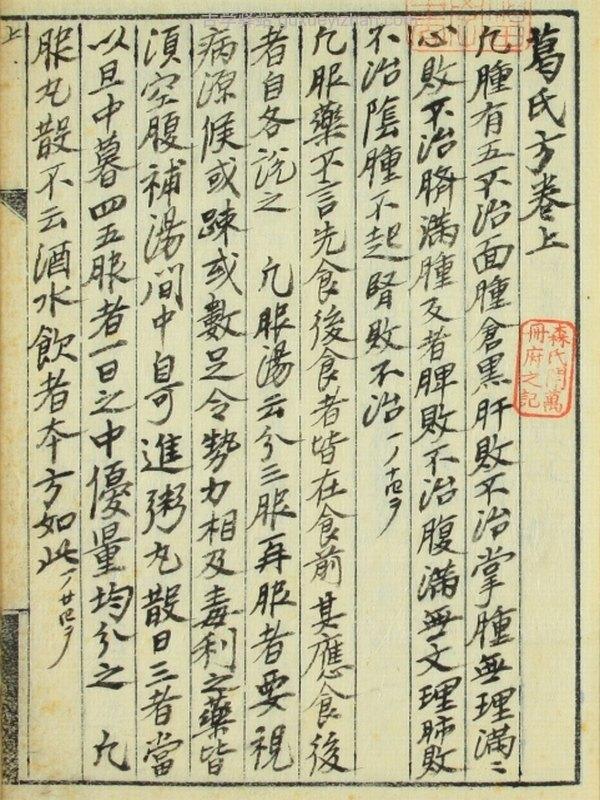 葛氏方卷上
凢腫有五不治面腫倉黒肝敗不治掌腫無理滿〻
心敗不治臍滿腫反者脾敗不治腹滿無文理肺敗
不治陰腫不起腎敗不治
凢服藥不言先食後食者皆在食前其應食後
者自各說之 凢服湯云分三服再服者要視
病源候或踈或數足令勢力相及毒利之藥皆
須空腹補湯間中自可進粥丸散日三者當
以旦中暮四五服者一日之中優量均分之 凢
服丸散不云酒水飲者本方如此
森氏開萬
冊府之記
上